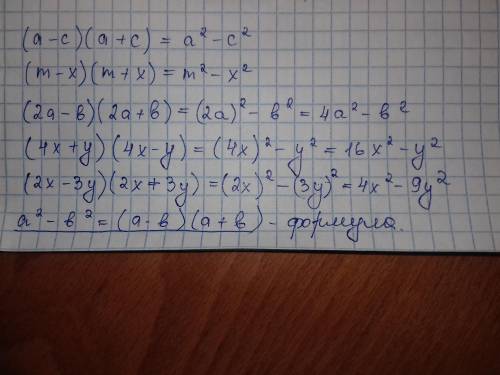 (a-c)(a+c) = a²-c²
(m-x)(m+x) = m²-x²
(2a-в)(2a+в) = (2a)²-в² = 4a²-в²
(4x+y)(4x-y) = (4x)²-y² = 16x²-y²
(2x-3y)(2x+3y) = (2x)²-(3y)² = 4x²-9y²
a²-в² = (a-в)(a+в) - формула.